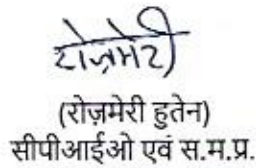 रोज़मेरी
(रोज़मेरी हुतेन)
सीपीआईओ एवं स.म.प्र.